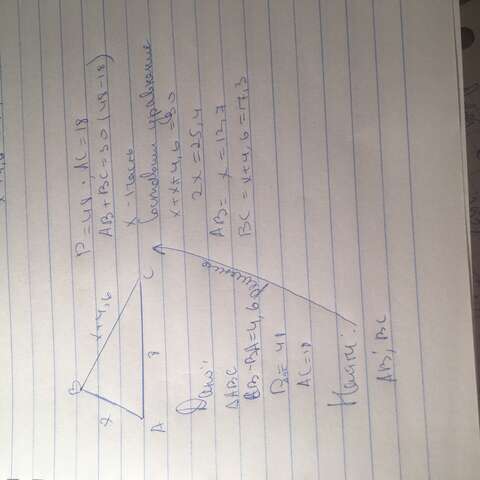 B
x
x+4,6
A
8
C
Дано:
ΔABC
CB-BA=4,6
P = 48
AC=18
Найти:
AB; BC
решение
P=48; AC=18
AB+BC=30 (48-18)
x - 1 часть
Составим уравнение
x+x+4,6=30
2x=25,4
AB= x=12,7
BC = x+4,6=17,3